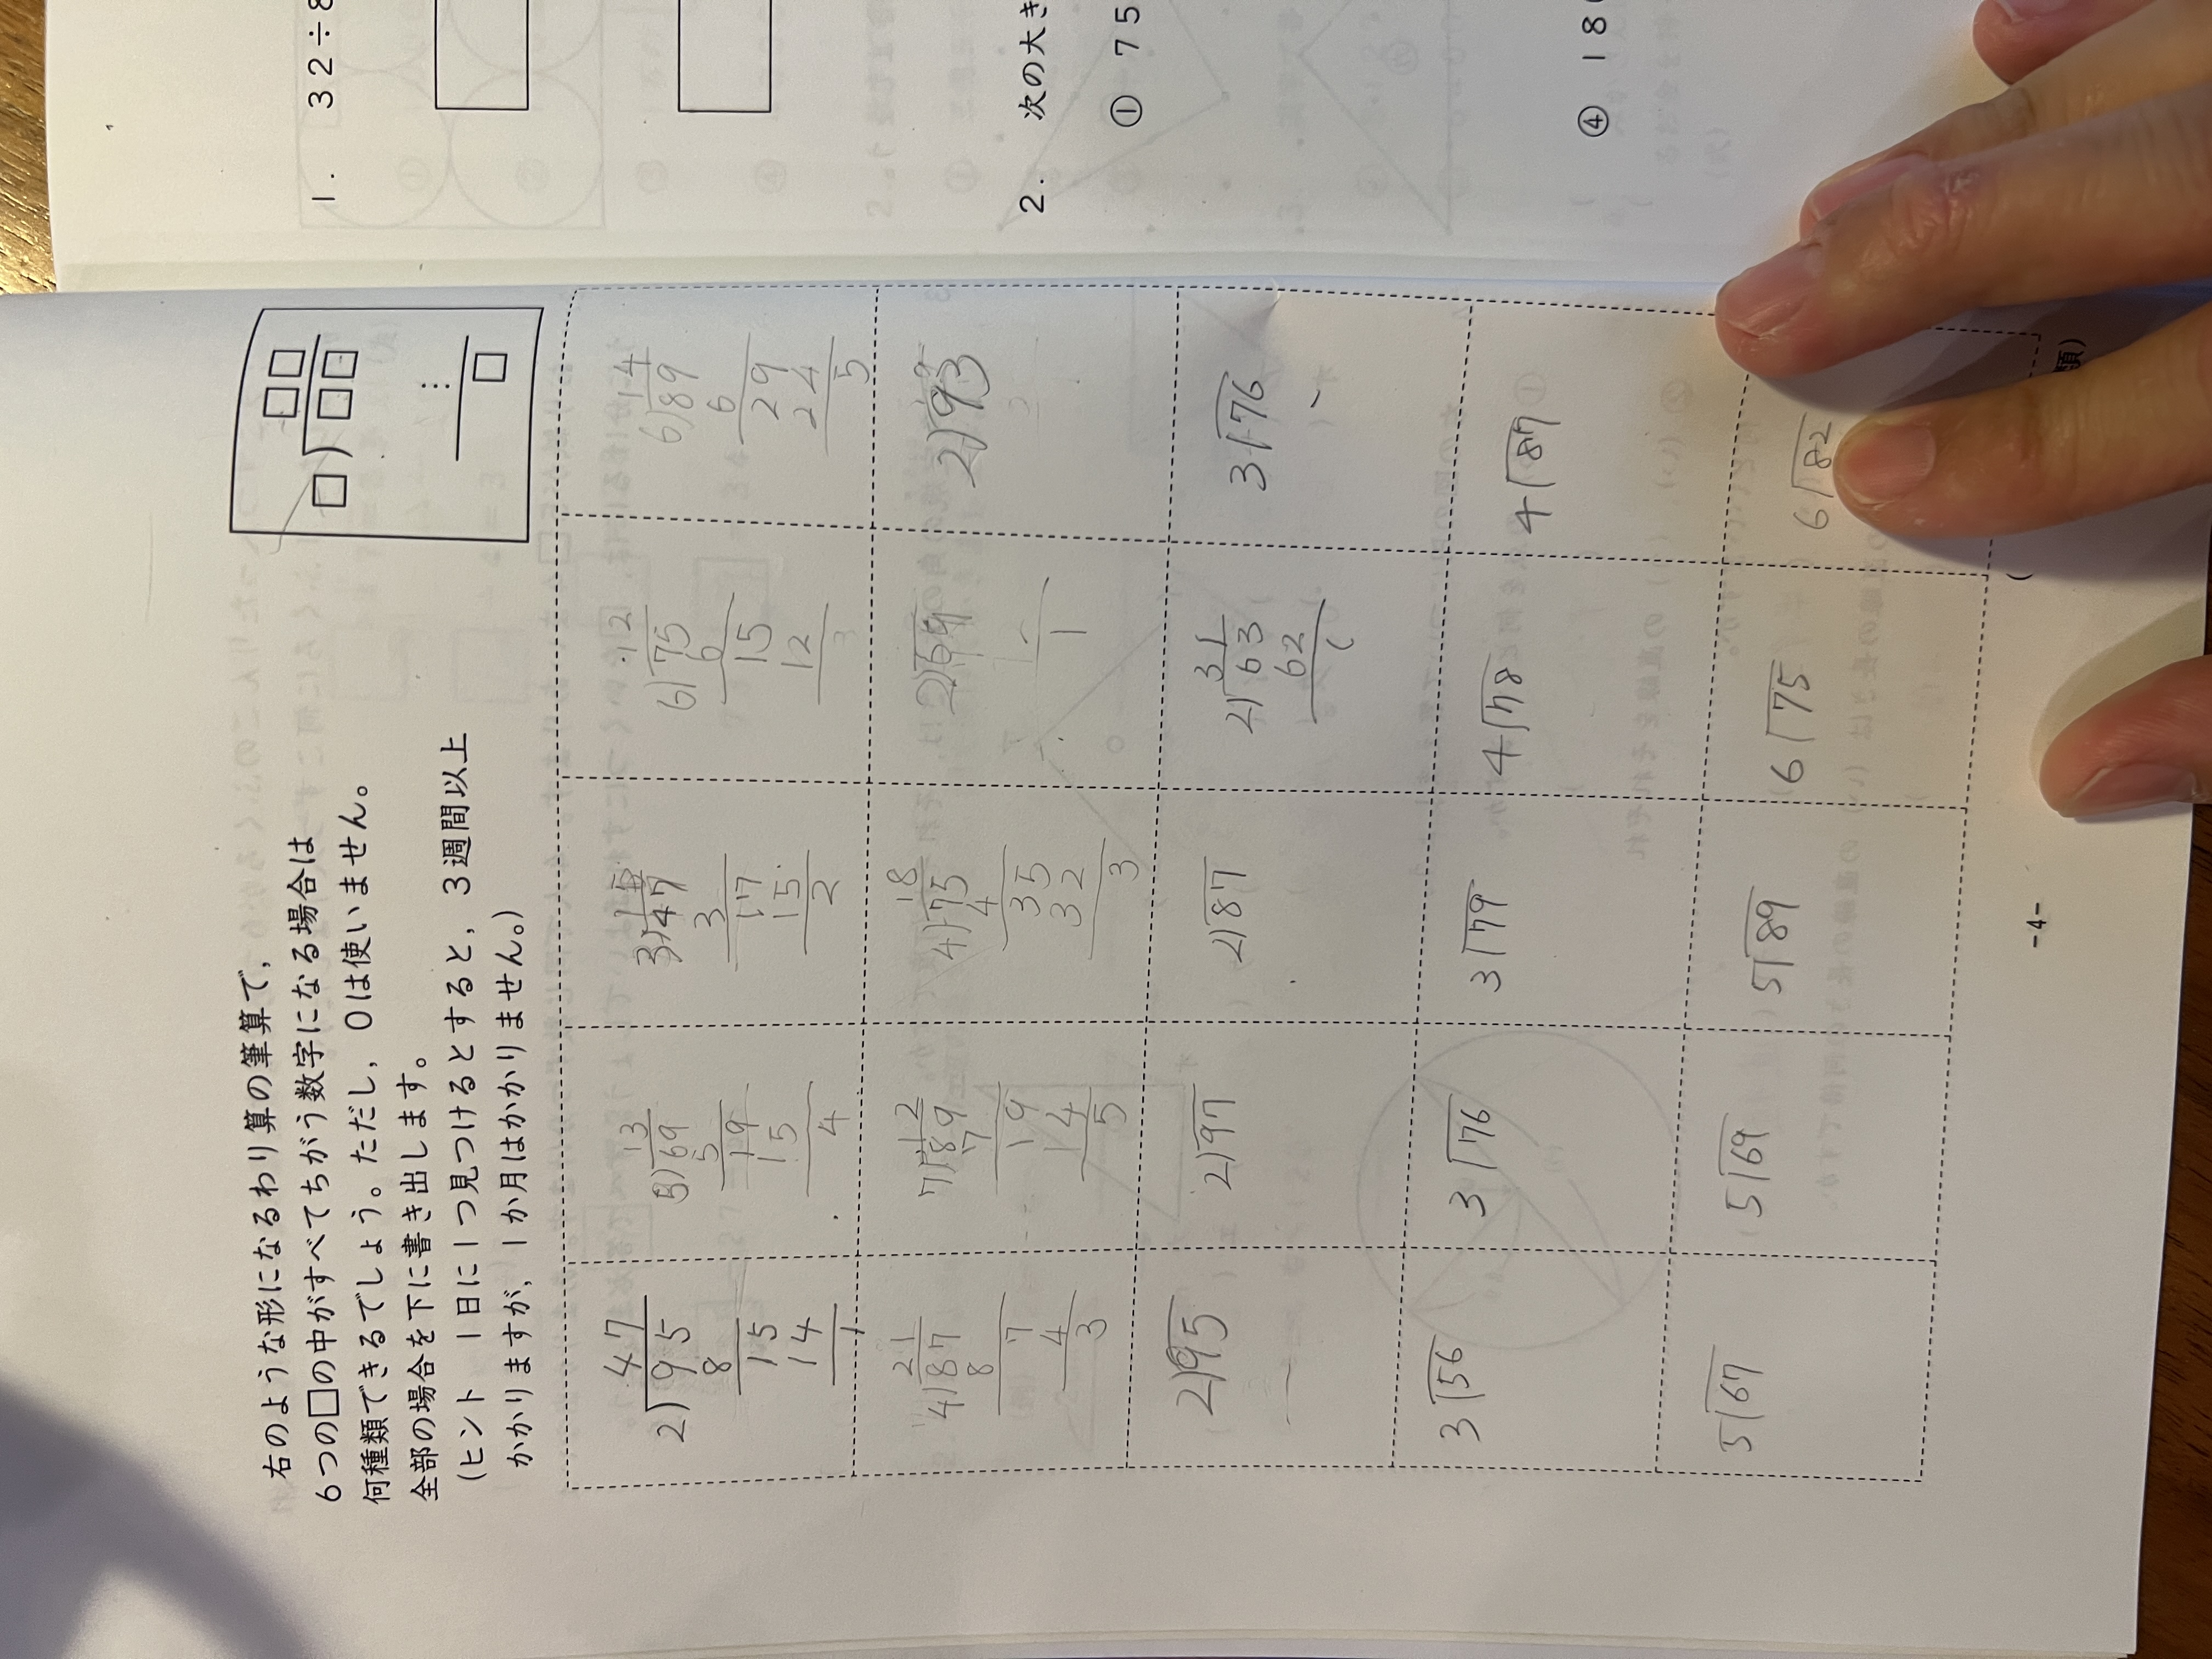 右のような形になるわり算の筆算で，
6つの□の中がすべてちがう数字になる場合は
何種類できるでしょう。ただし，0は使いません。
全部の場合を下に書き出します。
(ヒント　1日に1つ見つけるとすると，3週間以上
かかりますが，1か月はかかりません。)
□□
□)□□
⋮
□
47
2)95
8
15
14
1
13
5)69
5
19
15
4
15
3)47
3
17
15
2
12
6)75
6
15
12
3
14
6)89
6
29
24
5
21
4)87
8
7
4
3
12
7)89
7
19
14
5
18
4)75
4
35
32
3
1
2)93
2)95
2)97
2)87
31
2)63
62
1
3)76
3)56
3)76
3)79
4)78
4)87
5)67
5)69
5)89
6)75
6)82
-4-
(
類)
1.　32÷8
2.　次の大き
①　75
④　18